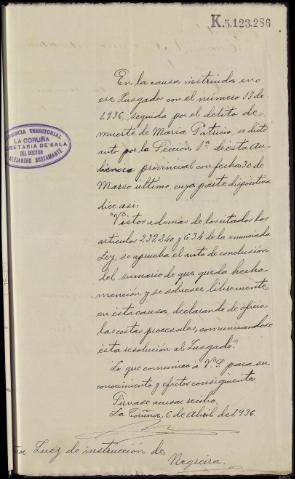 K.5.123.286
AUDIENCIA TERRITORIAL
LA CORUÑA
SECRETARIA DE SALA
DEL DOCTOR
ALEJANDRO BUSTAMANTE
En la causa instruida en
ese Juzgado con el número 13 de
1936, seguida por el delito de
muerte de María Patiño, se dictó
auto por la Sección 1ª de esta Au-
diencia provincial con fecha 30 de
Marzo último, cuya parte dispositiva
dice así:
"Vistos además de los citados los
artículos 232, 240 y 634 de la enunciada
Ley, se aprueba el auto de conclusión
del sumario de que queda hecha
mención y se sobresee libremente
en esta causa, declarando de oficio
las costas procesales, comunicándose
esta resolución al Juzgado".
Lo que comunico a V.S. para su
conocimiento y efectos consiguientes.
Sírvase acusar recibo.
La Coruña, 6 de Abril de 1936.
Juez de instrucción de
Negreira.